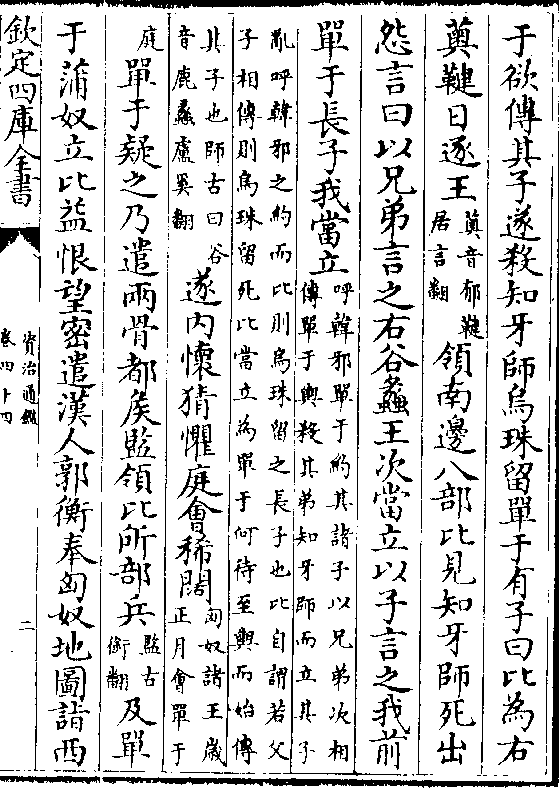 于欲傳其子遂殺知牙師烏珠留單于有子曰比為右
薁鞬日逐王
薁音郁鞬
居言翻
領南邊八部比見知牙師死出
怨言曰以兄弟言之右谷蠡王次當立以子言之我前
單于長子我當立
呼韓邪單于約其諸子以兄弟次相
傳單于輿殺其弟知牙師而立其子
亂呼韓邪之約而比則烏珠留之長子也比自謂若父
子相傳則烏珠留死比當立為單于何待至輿而始傳
其子也師古曰谷
音鹿蠡盧奚翻
遂內懷猜懼庭會稀闊
匈奴諸王歲
正月會單于
庭
單于疑之乃遣兩骨都矦監領比所部兵
監古
銜翻
及單
于蒲奴立比益恨望密遣漢人郭衡奉匈奴地圖詣西
欽定四庫全書
資治通鑑
卷四十四
二